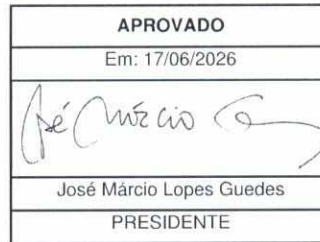 APROVADO
Em: 17/06/2026
José Márcio
José Márcio Lopes Guedes
PRESIDENTE